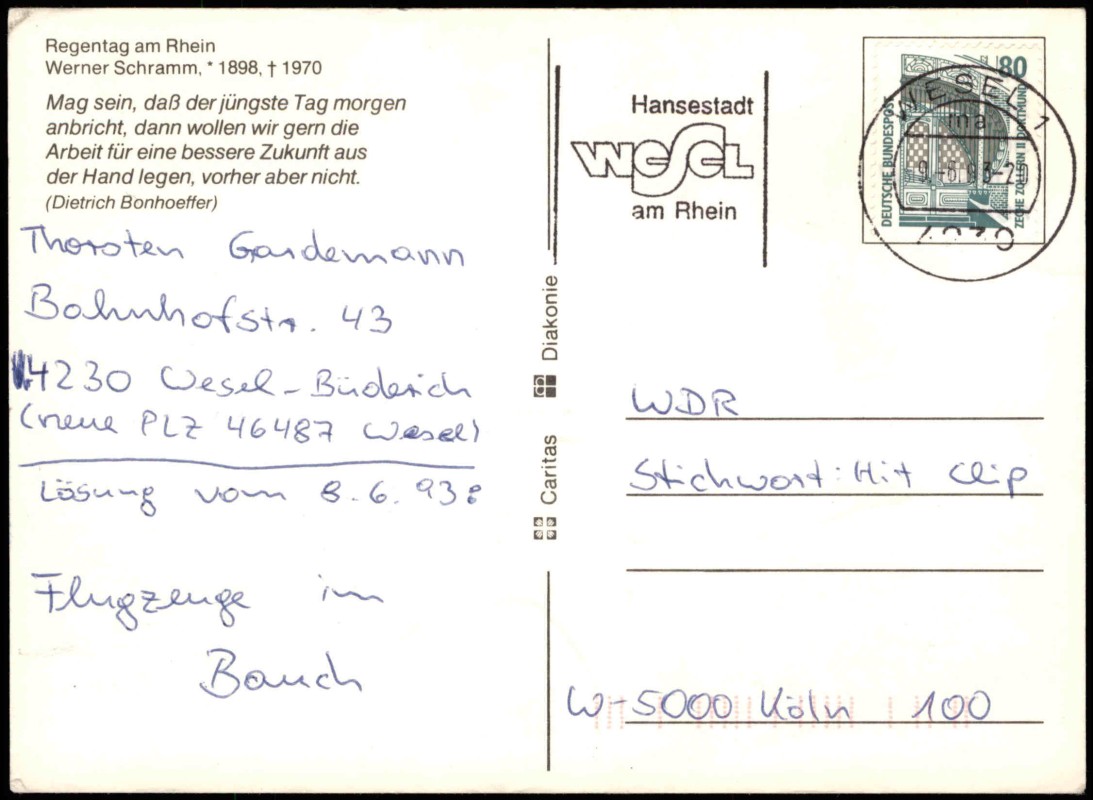 Regentag am Rhein
Werner Schramm, * 1898, † 1970
Mag sein, daß der jüngste Tag morgen
anbricht, dann wollen wir gern die
Arbeit für eine bessere Zukunft aus
der Hand legen, vorher aber nicht.
(Dietrich Bonhoeffer)
Thorsten Gardemann
Bahnhofstr. 43
4230 Wesel-Büderich
(neue PLZ 46487 Wesel)
Lösung vom 8.6.93:
Flugzeuge im
Bauch
Caritas Diakonie
Hansestadt
WESEL
am Rhein
80
DEUTSCHE BUNDESPOST
ZECHE ZOLLERN II DORTMUND
WESEL 1
ma
4230
WDR
Stichwort: Hit Clip
W-5000 Köln 100